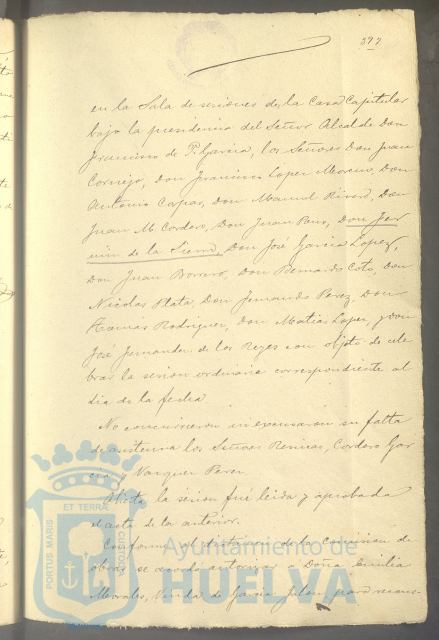 377
en la Sala de sesiones de la Casa Capitular
bajo la presidencia del Señor Alcalde Don
Francisco de P. García, los Señores Don Juan
Cornejo, Don Francisco López Moreno, Don
Antonio Don Manuel Rivero, Don
Juan M. Cordero, Don Juan Don
de la Sierra, Don José García López,
Don Juan Borrero, Don Bernardo Coto, Don
Nicolás Plata, Don Fernando Perez, Don
Tomás Rodriguez, Don Matías Lopez y Don
José Fernandez de los Reyes con objeto de cele
brar la sesion ordinaria correspondiente al
dia de la fecha
No concurrieron ni excusaron su falta
de asistencia los Señores Cordero Gar
cia y Vazquez Perez
Abierta la sesion fué leida y aprobada
el acta de la anterior.
Conforme al dictamen de la Comision de
obras se acordó autorizar a Doña Emilia
Morales, Viuda de García para
PORTUS MARIS
ET TERRÆ
CUSTODIA
Ayuntamiento de
HUELVA